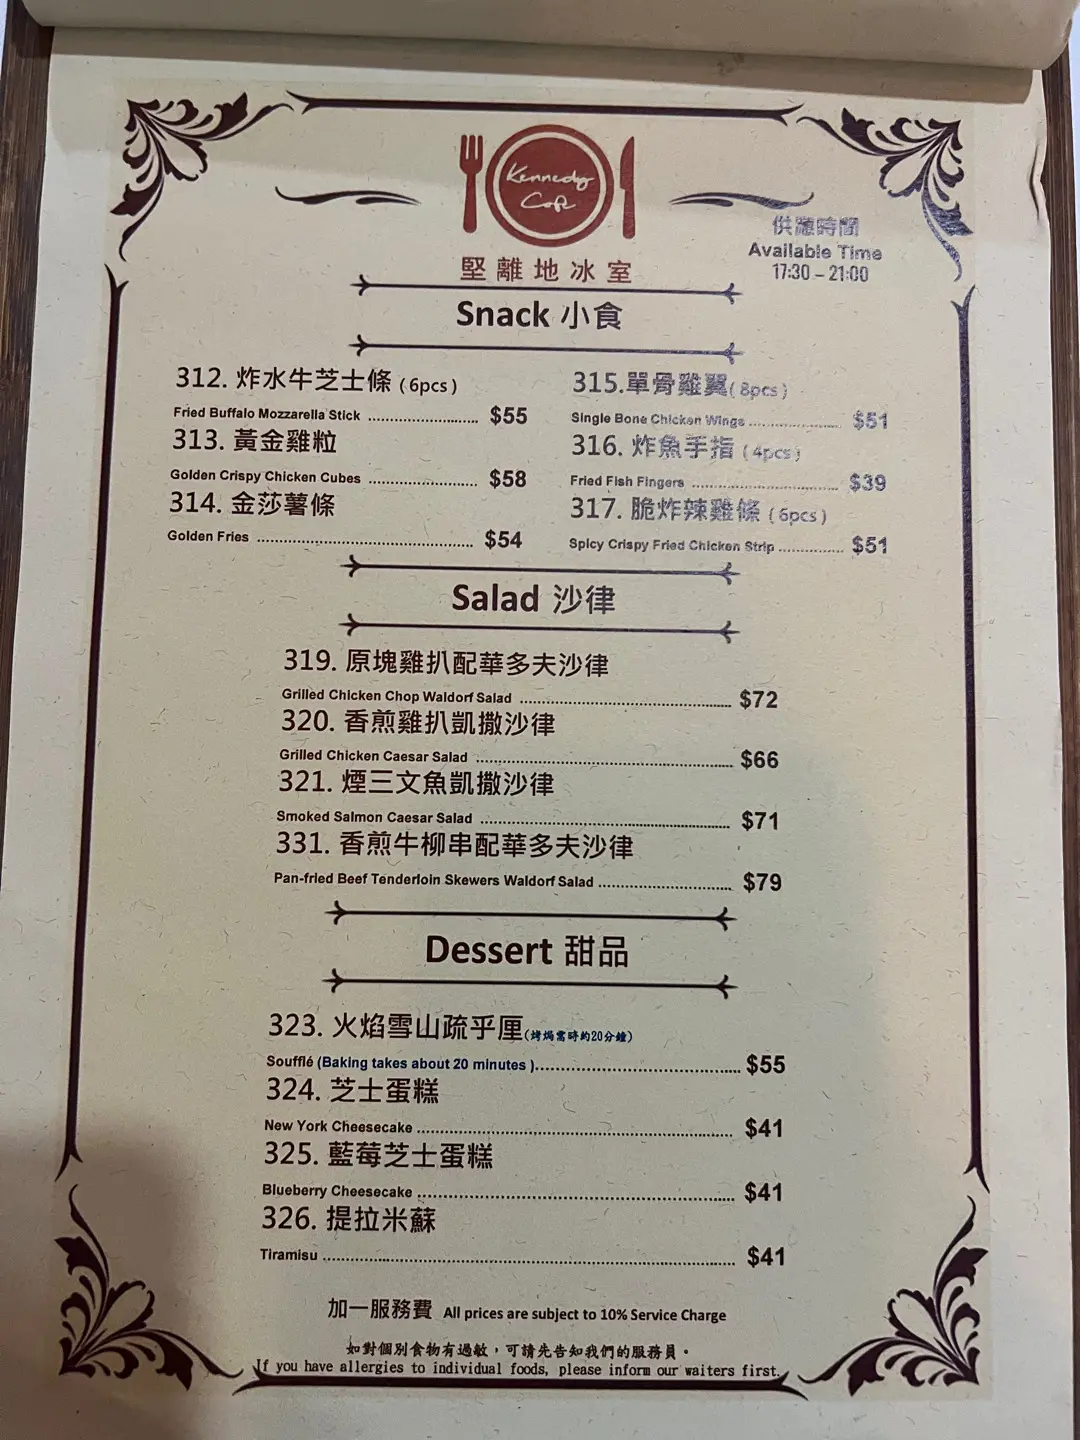 Kennedy
Cafe
堅離地冰室
供應時間
Available Time
17:30 – 21:00
Snack 小食
312. 炸水牛芝士條 (6pcs)
Fried Buffalo Mozzarella Stick ........................ $55
313. 黃金雞粒
Golden Crispy Chicken Cubes ........................ $58
314. 金莎薯條
Golden Fries ........................ $54
315.單骨雞翼(8pcs)
Single Bone Chicken Wings ........................ $51
316. 炸魚手指 (4pcs)
Fried Fish Fingers ........................ $39
317. 脆炸辣雞條 (6pcs)
Spicy Crispy Fried Chicken Strip ................ $51
Salad 沙律
319. 原塊雞扒配華多夫沙律
Grilled Chicken Chop Waldorf Salad ........................ $72
320. 香煎雞扒凱撒沙律
Grilled Chicken Caesar Salad ........................ $66
321. 煙三文魚凱撒沙律
Smoked Salmon Caesar Salad ........................ $71
331. 香煎牛柳串配華多夫沙律
Pan-fried Beef Tenderloin Skewers Waldorf Salad ........................ $79
Dessert 甜品
323. 火焰雪山疏乎厘(烤焗需時約20分鐘)
Soufflé (Baking takes about 20 minutes )........................ $55
324. 芝士蛋糕
New York Cheesecake ........................ $41
325. 藍莓芝士蛋糕
Blueberry Cheesecake ........................ $41
326. 提拉米蘇
Tiramisu ........................ $41
加一服務費 All prices are subject to 10% Service Charge
如對個別食物有過敏，可請先告知我們的服務員。
If you have allergies to individual foods, please inform our waiters first.